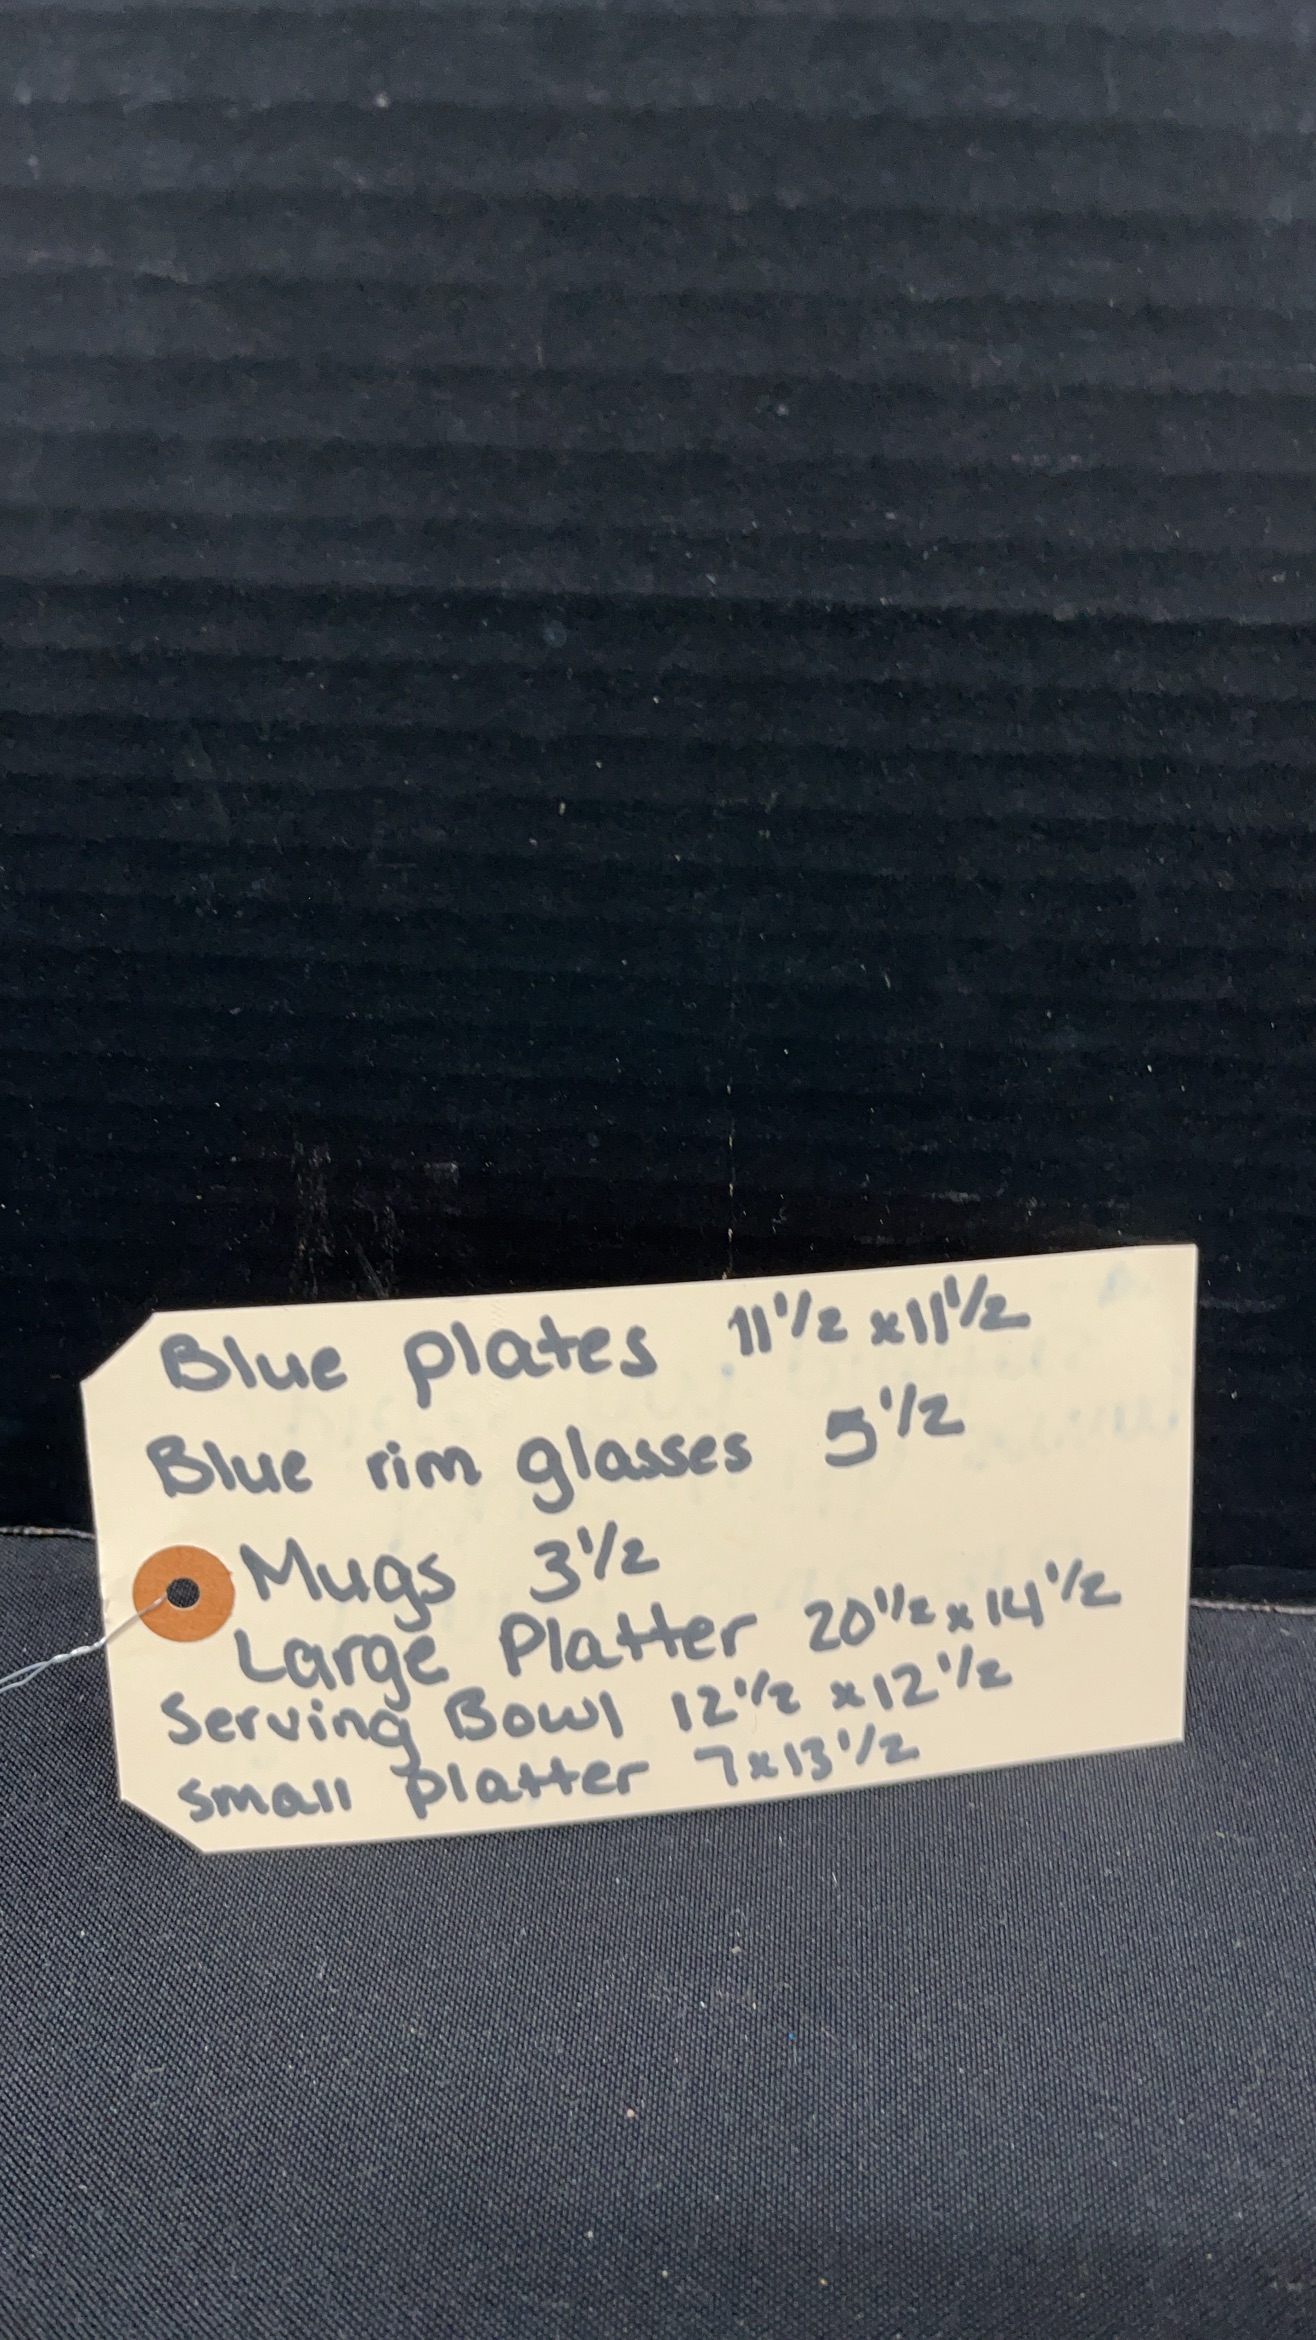 Blue plates 11 1/2 x 11 1/2
Blue rim glasses 5 1/2
Mugs 3 1/2
Large Platter 20 1/2 x 14 1/2
Serving Bowl 12 1/2 x 12 1/2
small platter 7x13 1/2